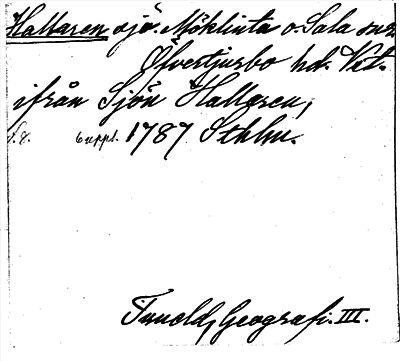 Hallaren sjö. Möklinta o. Sala snr
Öfvertjurbo hd. Vstm.
ifrån Sjön Hallaren,
s. 8. 6 uppl. 1787 Sthlm.
Tuneld, Geografi. III.